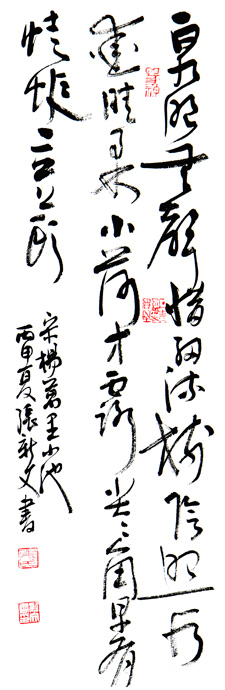 泉眼無聲惜細流樹陰照水
愛晴柔小荷才露尖尖角早有
蜻蜓立上頭
宋楊萬里小池
丙申夏張新文書